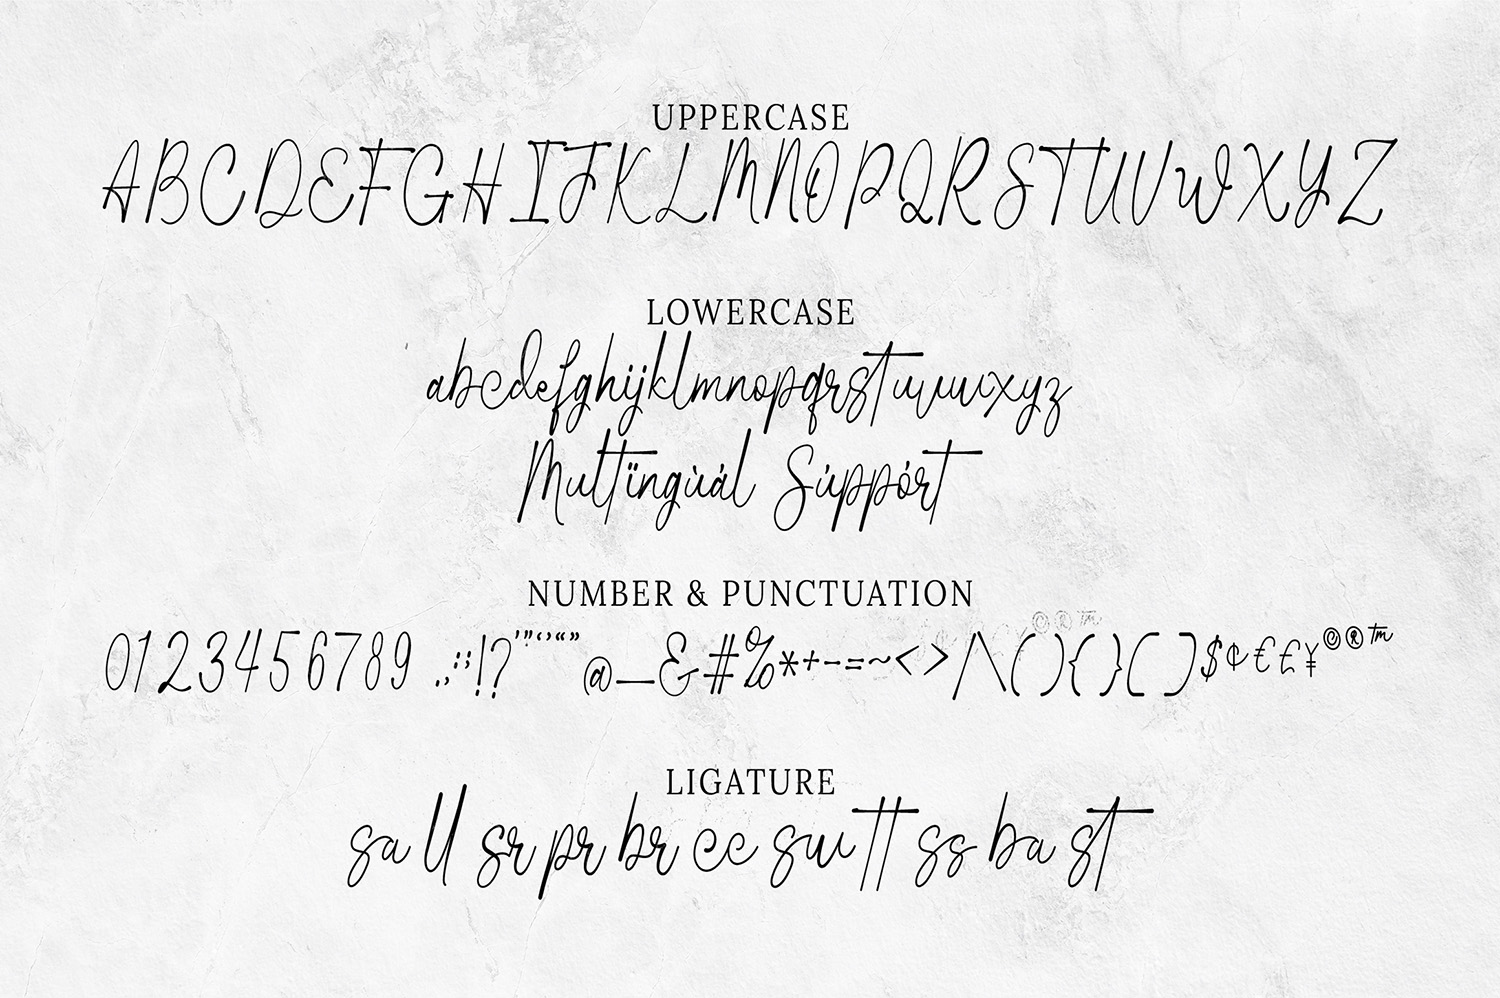 UPPERCASE
ABCDEFGHIJKLMNOPQRSTUVWXYZ
LOWERCASE
abcdefghijklmnopqrstuvwxyz
Multïingùál Súppórt
NUMBER & PUNCTUATION
0123456789 .,:;!?'"‘’“”@_&#%*+-=~<>/\(){}[]$¢€££¥©®™
LIGATURE
sa ll sr pr br ec sw tt ss ba st